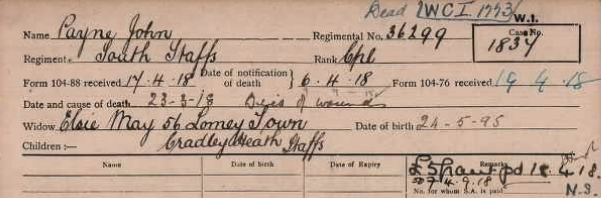 Dead WCI 1773/ W.1.
Name Payne John Regimental No. 36299 Case No. 1834
Regiment South Staffs Rank Cpl
Form 104-88 received 17.4.18 Date of notification of death } 6.4.18 Form 104-76 received 19 4.18
Date and cause of death 23-3-18 Died of wounds
Widow Elsie May 56 Lomey Town Date of birth 24-5-95
Children:— Cradley Heath Staffs
Name Date of birth Date of Expiry Remarks
£5 grant pd 18.4.18.
No. for whom S.A. is paid N.S.